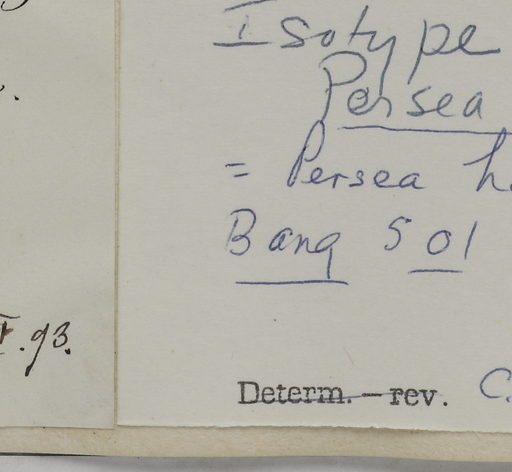 Isotype
Persea
= Persea h
Bang 501
.93.
Determ. — rev. C.